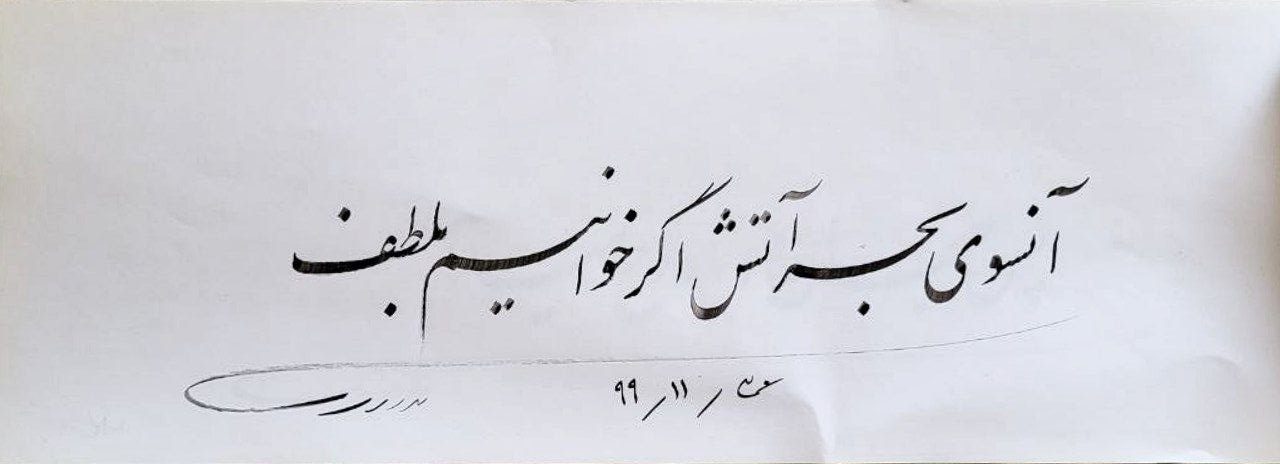 آنسوی بحر آتش اگر خوانیم بلطف
۹۹/۱۱/